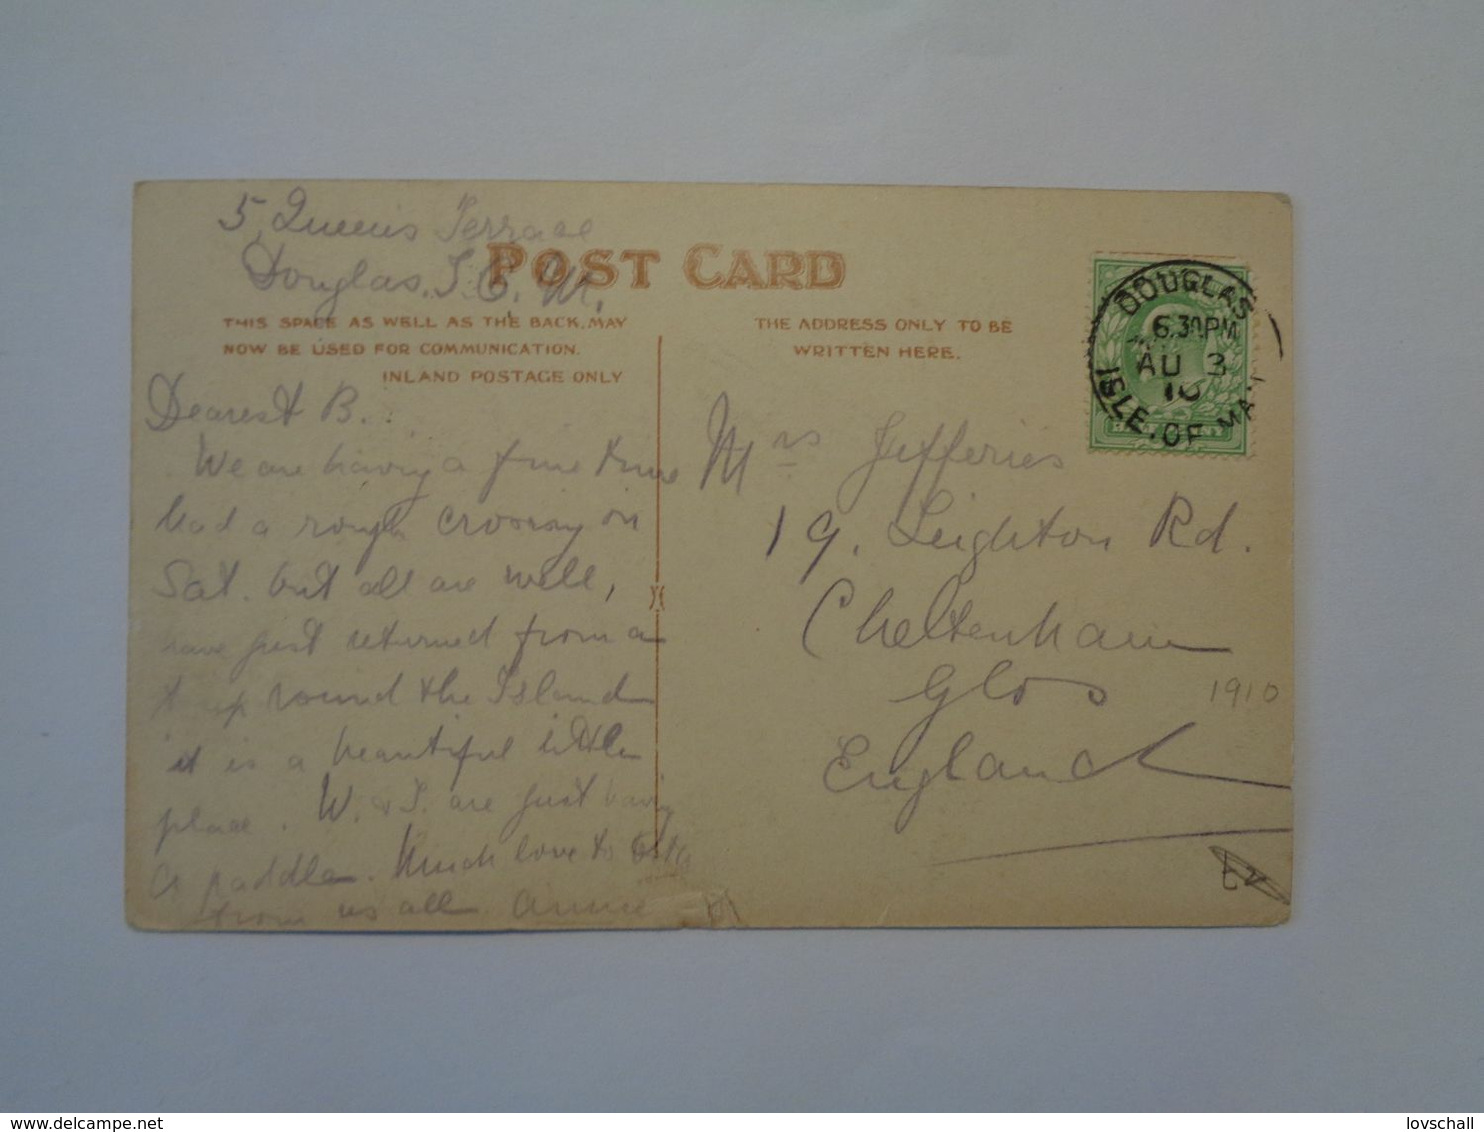 5, Queen's Terrace
Douglas, I. O. M.
POST CARD
THIS SPACE AS WELL AS THE BACK, MAY
NOW BE USED FOR COMMUNICATION.
INLAND POSTAGE ONLY
Dearest B.
We are having a fine time
had a rough crossing on
Sat. but all are well,
have just returned from a
trip round the Island
it is a beautiful little
place. W. & J. are just having
a paddle. Much love to
from us all Annie
THE ADDRESS ONLY TO BE
WRITTEN HERE.
DOUGLAS
6.30PM
AU 3
10
ISLE. OF MAN
Mrs Jefferies
19, Leighton Rd.
Cheltenham
Glos
England
1910
lovschall